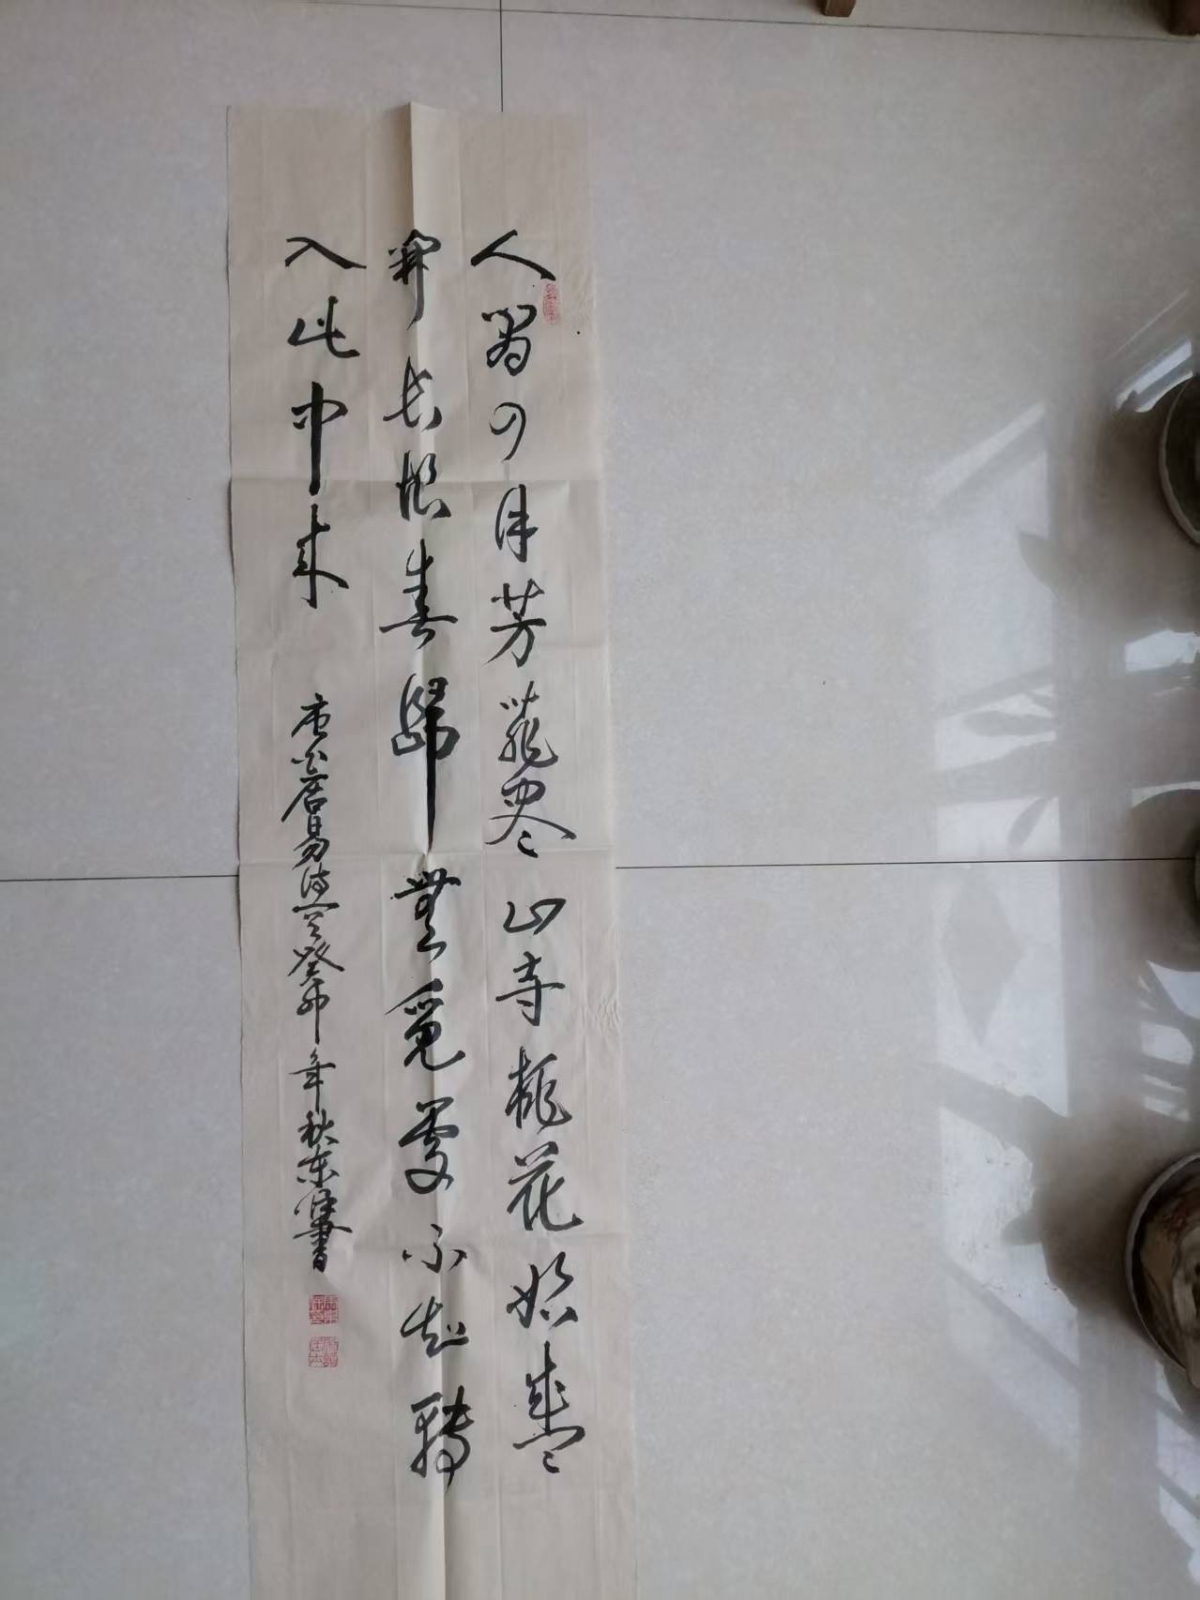 人間四月芳菲盡山寺桃花始盛
開長恨春歸無覓處不知轉
入此中來
唐白居易诗癸卯年秋东書